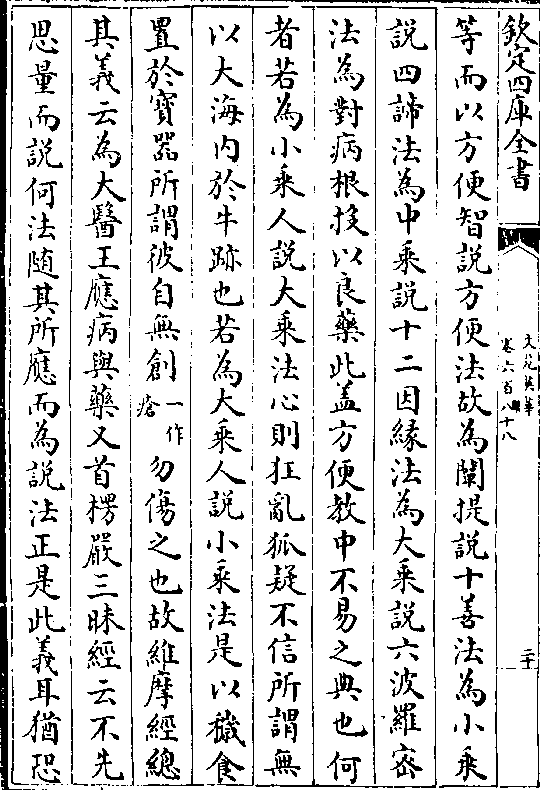 欽定四庫全書
文苑英華
卷六百八十八
二十
等而以方便智說方便法故為闡提說十善法為小乘
說四諦法為中乘說十二因緣法為大乘說六波羅密
法為對病根投以良藥此盖方便教中不易之典也何
者若為小乘人說大乘法心則狂亂狐疑不信所謂無
以大海内於牛跡也若為大乘人說小乘法是以穢食
置於寶器所謂彼自無創一作瘡勿傷之也故維摩經總
其義云為大醫王應病與藥又首楞嚴三昧經云不先
思量而說何法隨其所應而為說法正是此義耳猶恐